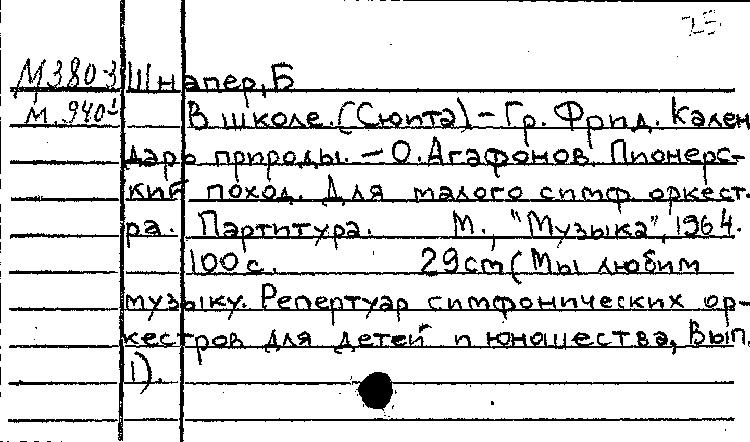 25
М3803 Шнапер, Б
М.940 В школе. (Сюита) – Гр. Фрид. Кален
дарь природы. – О. Агафонов. Пионерс-
кий поход. Для малого симф. оркест.
ра. Партитура. М., "Музыка", 1964.
100 с. 29cm (Мы любим
музыку. Репертуар симфонических ор-
кестров для детей и юношества, Вып.
1).